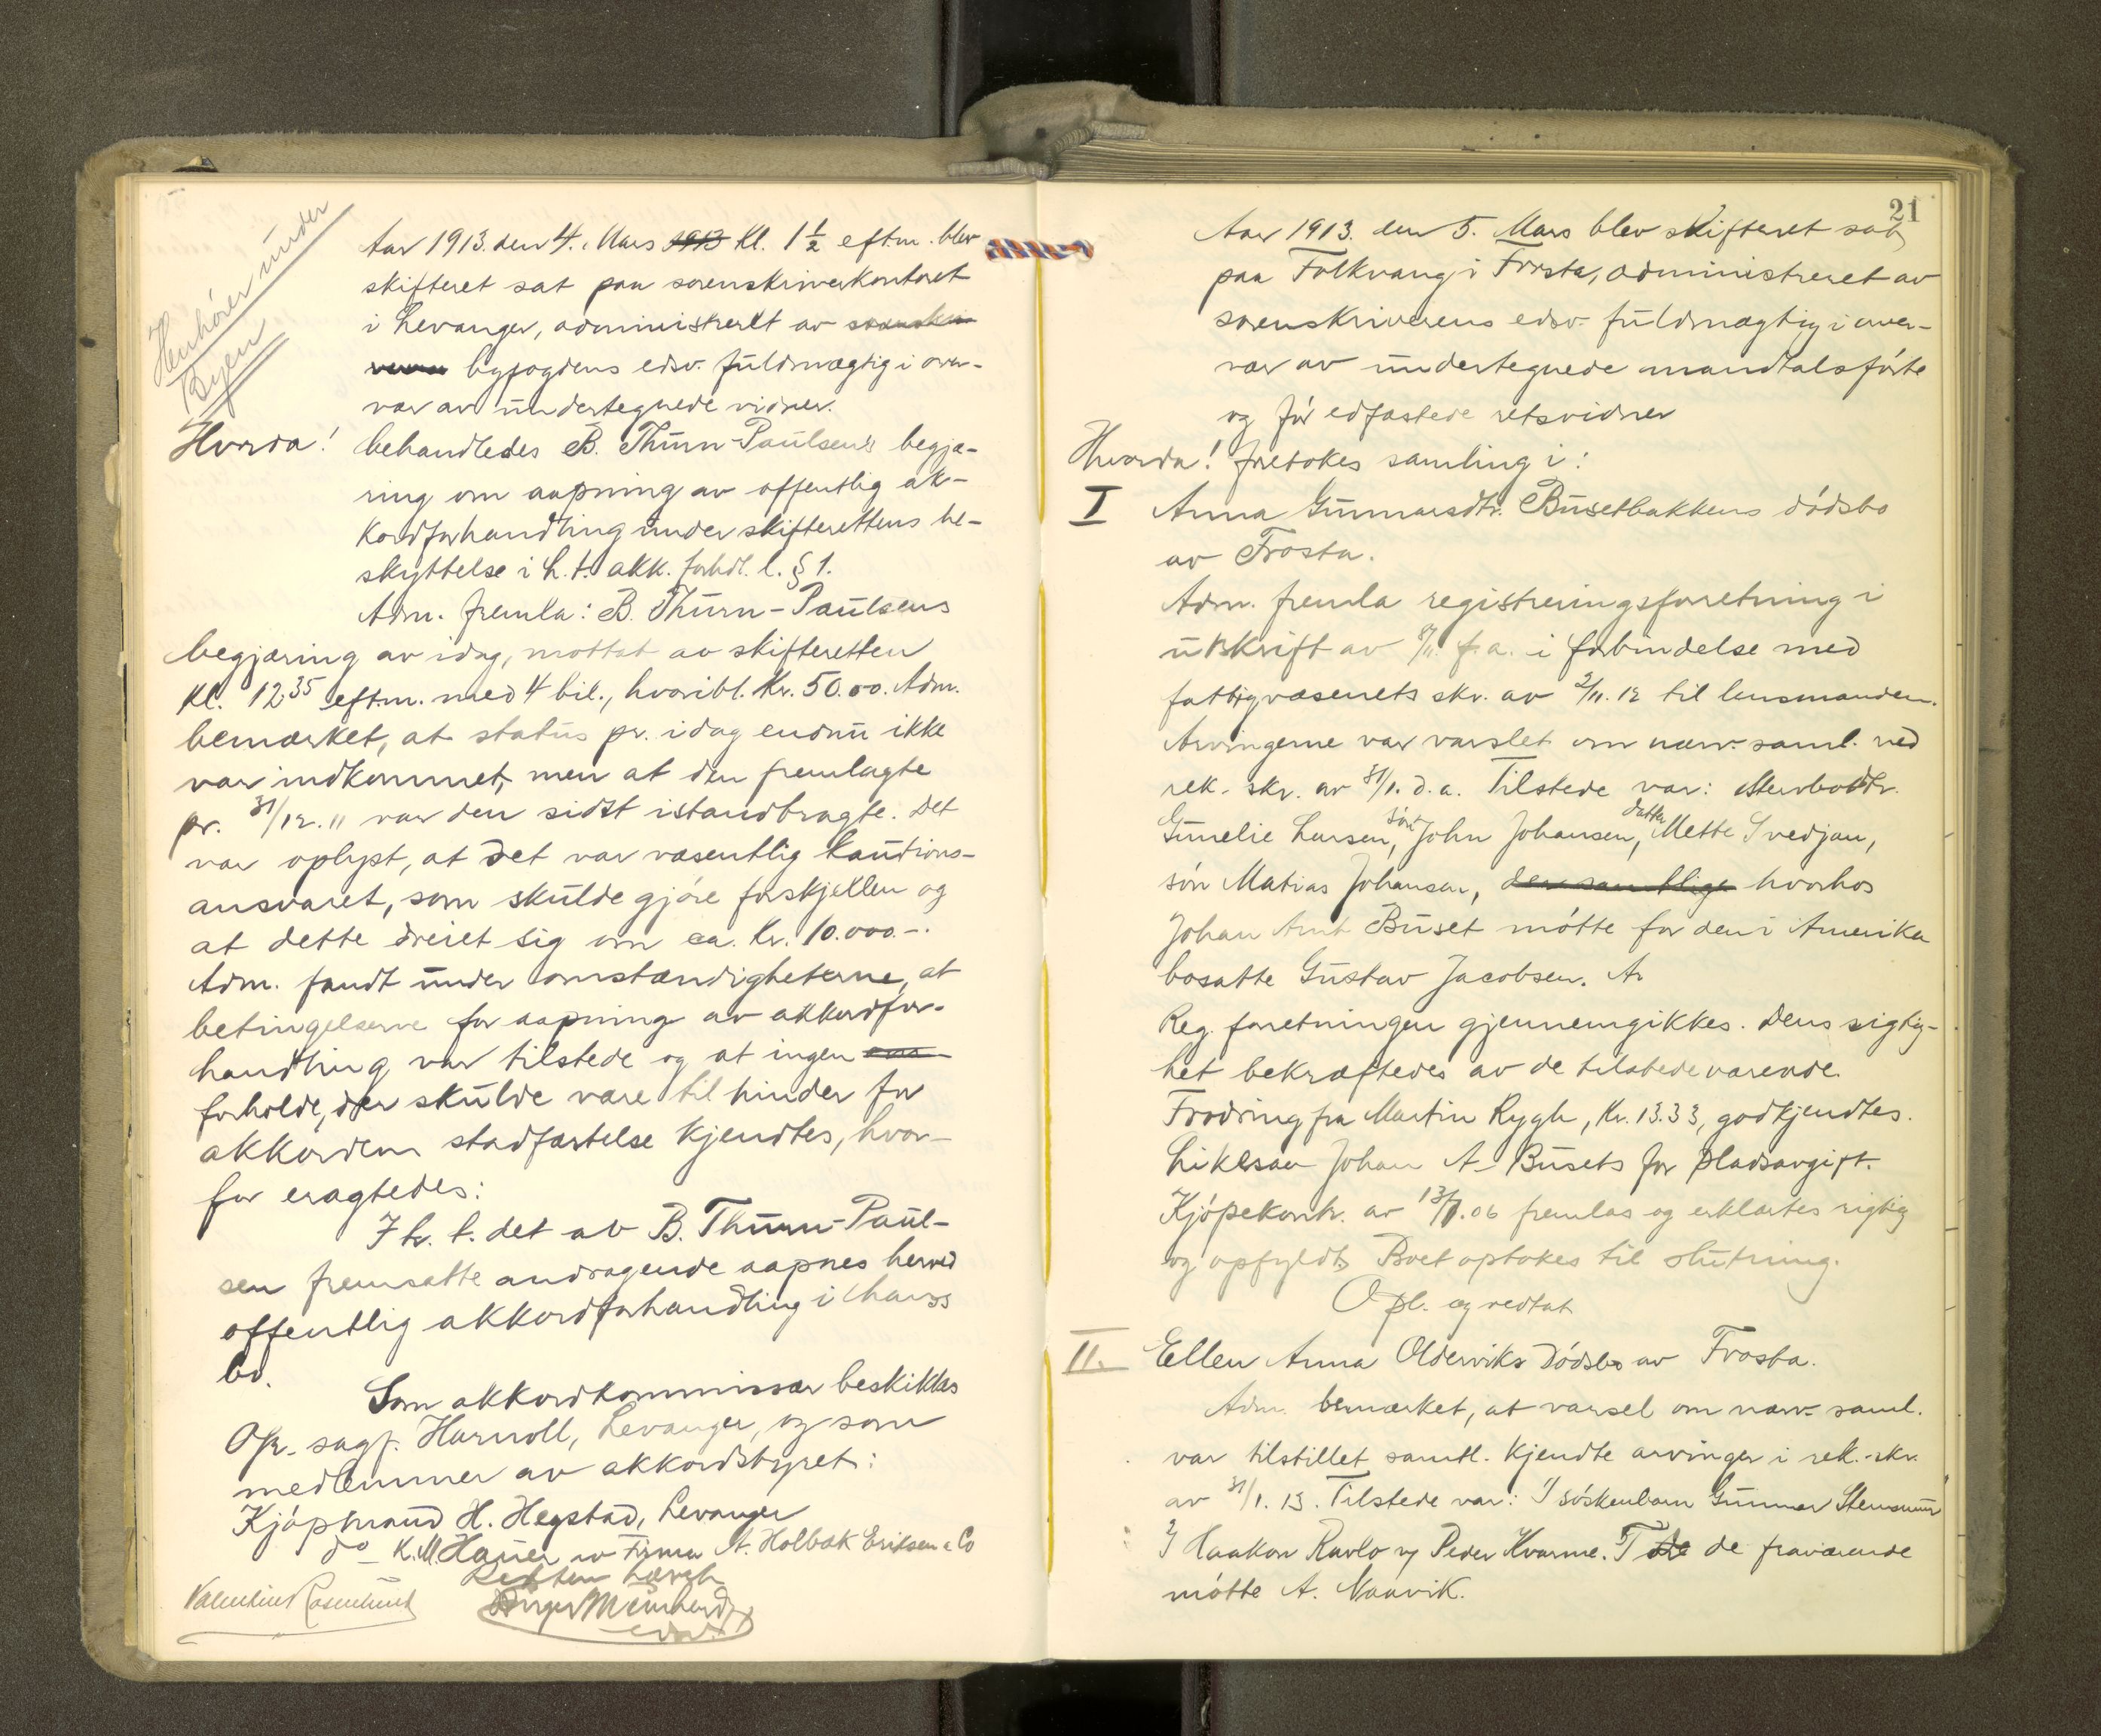 Henhörer under
Byen
Aar 1913. den 4. Mars 1913 Kl. 1 1/2 eftm. blev
skifteret sat paa sorenskriverkontoret
i Levanger, administrert av sorenskri
veren byfogdens edsv. fuldmægtig i over-
vær av undertegnede vidner.
Hvorda! behandledes B. Thurn-Paulsen's begjæ-
ring om aapning av offentlig ak-
kordforhandling under skifterettens be-
skyttelse i h. t. akk. forhdl. l. § 1.
Adm. fremla: B. Thurn-Paulsens
begjæring av idag, mottat av skifteretten
Kl. 12.35 eftm. med 4 bil., hvoribl. Kr. 50.00. Adm.
bemærket, at status pr. idag endnu ikke
var indkommet, men at den fremlagte
pr. 31/12. 11 var den sidst istandbragte. Det
var oplyst, at det var væsentlig kautions-
ansvaret, som skulde gjöre forskjellen og
at dette dreiet sig om ca. Kr. 10.000.-.
Adm. fandt under omstændigheterne, at
betingelserne for aapning av akkordfor-
handling var tilstede og at ingen
forholde, der skulde være til hinder for
akkordens stadfæstelse kjendtes, hvor-
for eragtedes:
I h. t. det av B. Thurn-Paul-
sen fremsatte andragende aapnes herved
offentlig akkordforhandling i hans
bo.
Som akkordkommissær beskikkes
Opr. sagf. Harnoll, Levanger, og som
medlemmer av akkordstyret:
Kjöpmand H. Hegstad, Levanger
do K. M. Hauer av Firma A. Holbæk Eriksen & Co
Retten hævet
Valentine Rosenlund
21
Aar 1913. den 5. Mars blev skifteret sat
paa Folkvang i Frosta, administreret av
sorenskriverens edsv. fuldmægtig i over-
vær av undertegnede mandtalsförte
og för edfæstede retsvidner
Hvorda! foretokes samling i:
I Anna Gunnarsdtr. Busetbakkens dödsbo
av Frosta.
Adm. fremla registreringsforetning i
utskrift av 8/11. f. a. i forbindelse med
fattigvæsenets skr. av 2/11. 12 til lensmanden.
Arvingerne var varslet om nærv. saml. ved
rek. skr. av 31/1. d. a. Tilstede var: Stervbodtr.
Gunelie Larsen, sön John Johansen, datter Mette Svedjan,
sön Matias Johansen, den samtlige hvorhos
Johan Arnt Buset mötte for den i Amerika
bosatte Gustav Jacobsen. Ar
Reg. foretningen gjennemgikkes. Dens rigtig-
het bekræftedes av de tilstedeværende.
Fordring fra Martin Rygh, Kr. 13.33, godkjendtes.
Likesaa Johan A. Busets for pladsavgift.
Kjöpekontr. av 13/1. 06 fremlas og erklærtes rigtig
og opfyldt. Boet optokes til slutning.
Opl. og vedtat
II. Ellen Anna Olderviks dödsbo av Frosta.
Adm. bemærket, at varsel om nærv. saml.
var tilstillet samtl. kjendte arvinger i rek. skr.
av 31/1. 13. Tilstede var: 1/ söskenbarn Gunnar Stensmur
2/ Haakon Ravlo og Peder Kvarme. For de fraværende
mötte A. Naavik.